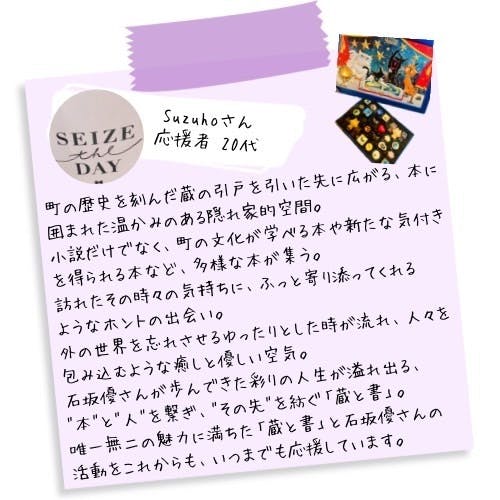 Suzuhoさん
応援者 20代
SEIZE
the
DAY
町の歴史を刻んだ蔵の引戸を引いた先に広がる、本に
囲まれた温かみのある隠れ家的空間。
小説だけでなく、町の文化が学べる本や新たな気付き
を得られる本など、多様な本が集う。
訪れたその時々の気持ちに、ふっと寄り添ってくれる
ようなホントの出会い。
外の世界を忘れさせるゆったりとした時が流れ、人々を
包み込むような癒しと優しい空気。
石坂優さんが歩んできた彩りの人生が溢れ出る、
"本"と"人"を繋ぎ、"その先"を紡ぐ「蔵と書」。
唯一無二の魅力に満ちた「蔵と書」と石坂優さんの
活動をこれからも、いつまでも応援しています。